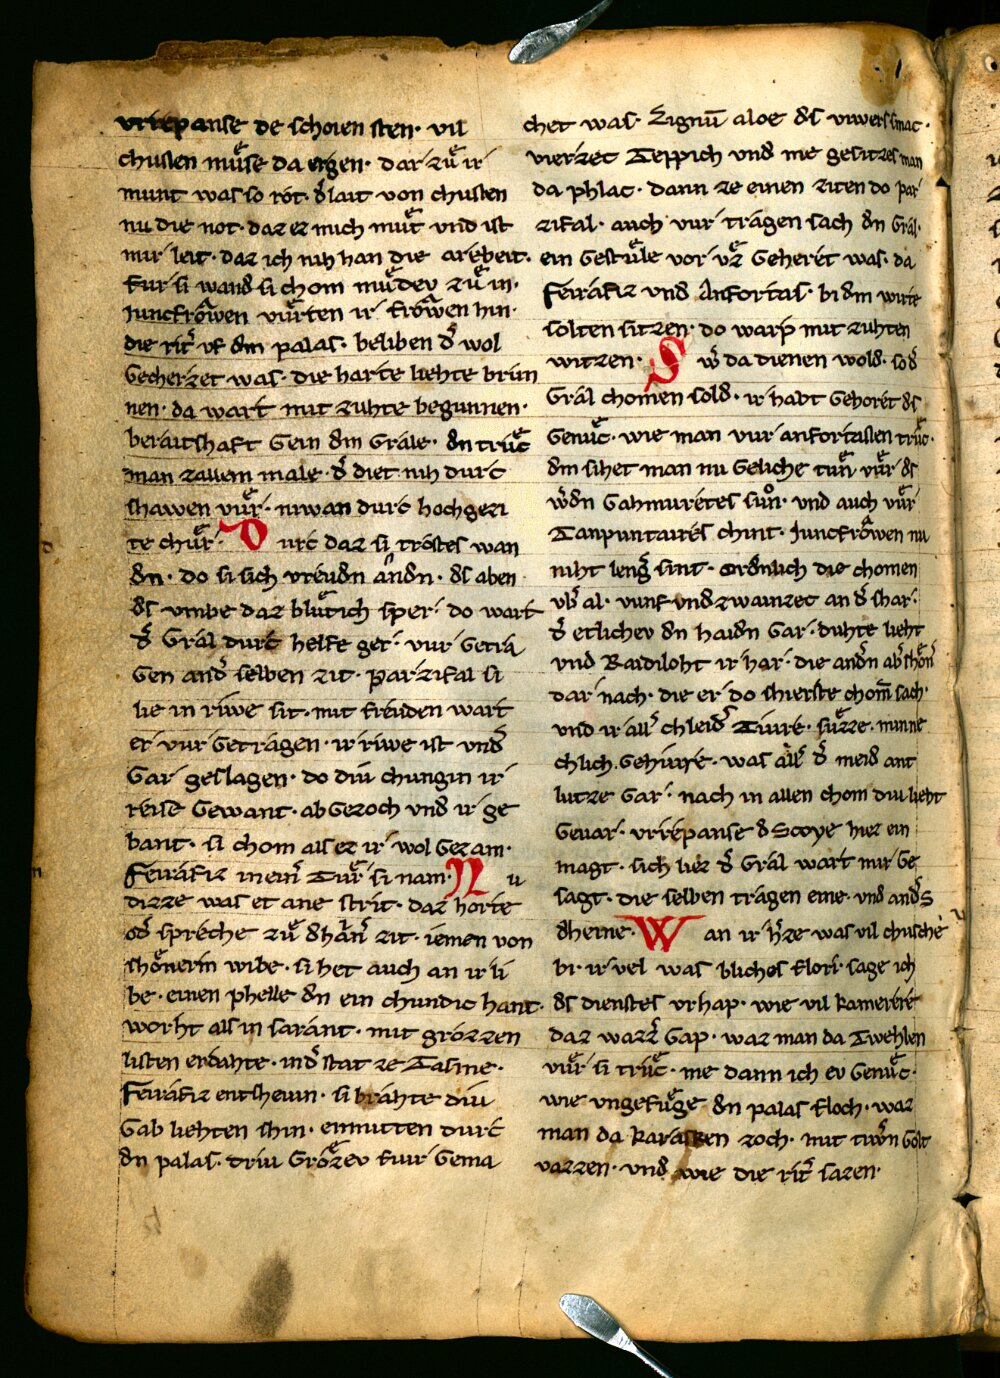 vriepanse de schoien sten· vil
chussen muͤse da ergen· dar zuͤ ir
munt was so rot· d͛ lait von chussen
nu die not· daz ez mich muͤt vnd ist
mir leit· daz ich niht han die areibeit·
fur si wand si chom muͤdev zuͤ in·
Juncfroͮwen vuͤrten ir froͮwen hin·
die rit͛ vf dm palas· beliben d͛ wol
Gecherzet was· die harte liehte brun
nen· da wart mit zuhte begunnen·
beraitshaft Gein dm Grale· dn truͤc
man zallem male· d͛ diet niht durc
shawen vuͤr· niwan durc hochgezi
te chuͤr· D urc daz si trostes wan
dn· do si sich vreudn andn· ds aben
ds vmbe daz bluͤtich sper· do wart
d͛ Gral durc helfe ger· vur Getra
Gen and͛ selben zit· parzifal si
lie in riwe sit· mit freuden wart
er vur Getragen· ir riwe ist vnd͛
Gar geslagen· do diu chungin ir
reise Gewant· ab Gezoch vnd ir ge
bant· si chom als ez ir wol Gezam·
Feirafiz in ein͛ Tuͤr si nam· N u
dizze was et ane strit· daz horte
od͛ spreche zuͤ dhain͛ zit· iemen von
schoͤnerm wibe· si het auch an ir li
be· einen phelle dn ein chundic hant·
worht als in sarant· mit grozzen
listen erdahte· ind͛ stat ze Tasme·
Feirafiz entschevin· si brahte diu
Gab liehten shin· enmitten durc
dn palas· driu Grozev fiur Gema
chet was· Lignu̅ aloe ds viwers smac·
vierzec Teppich vnd me gesitzes man
da phlac· dann ze einen ziten do par
zifal· auch vur tragen sach dn Gral·
ein Gestuͤle vor vz Geheret was· da
Feirafiz vnd Anfortas· bi dm wirte
solten sitzen· do warp mit zuhten
witzen· S w͛ da dienen wold· so d͛
Gral chomen sold· ir habt Gehoret ds
Genuͤc· wie man vur anfortassen truͤc·
dm sihet man nu Geliche tun· vuͤr ds
w͛dn Gahmuretes suͦn· vnd auch vuͤr
Tanpuntaires chint· Juncfroͮwen nu
niht leng͛ sint· ordnlich die chomen
vb͛ al· vunf vnd zwainzec an d͛ shar·
d͛ etlichev dn haidn Gar· duhte lieht
vnd Raidiloht ir har· die andn ab͛ schoͤn͛
dar nach· die er do shierste chom̅ sach·
vnd ir all͛ chleid͛ Tiure· suͤzze· minne
chlich Gehiure· was all͛ d͛ meid ant
lutze Gar· nach in allen chom diu lieht
Gevar· vrrepanse d Scoye hiez ein
magt· sich liez d͛ Gral wart mir Ge
sagt· die selben tragen eine· vnd and͛s
dheine· W an ir h͛ze was vil chusche
bi· ir vel was bliches flori· sage ich
ds dienstes vrhap· wie vil kamerere
daz wazz͛ Gap· waz man da Twehlen
vuͤr si truͤc· me dann ich ev Genuͤc·
wie vngefuͤge dn palas floch· waz
man da karaschen zoch· mit tiw͛n Golt
vazzen· vnd wie die rit͛ sazen·